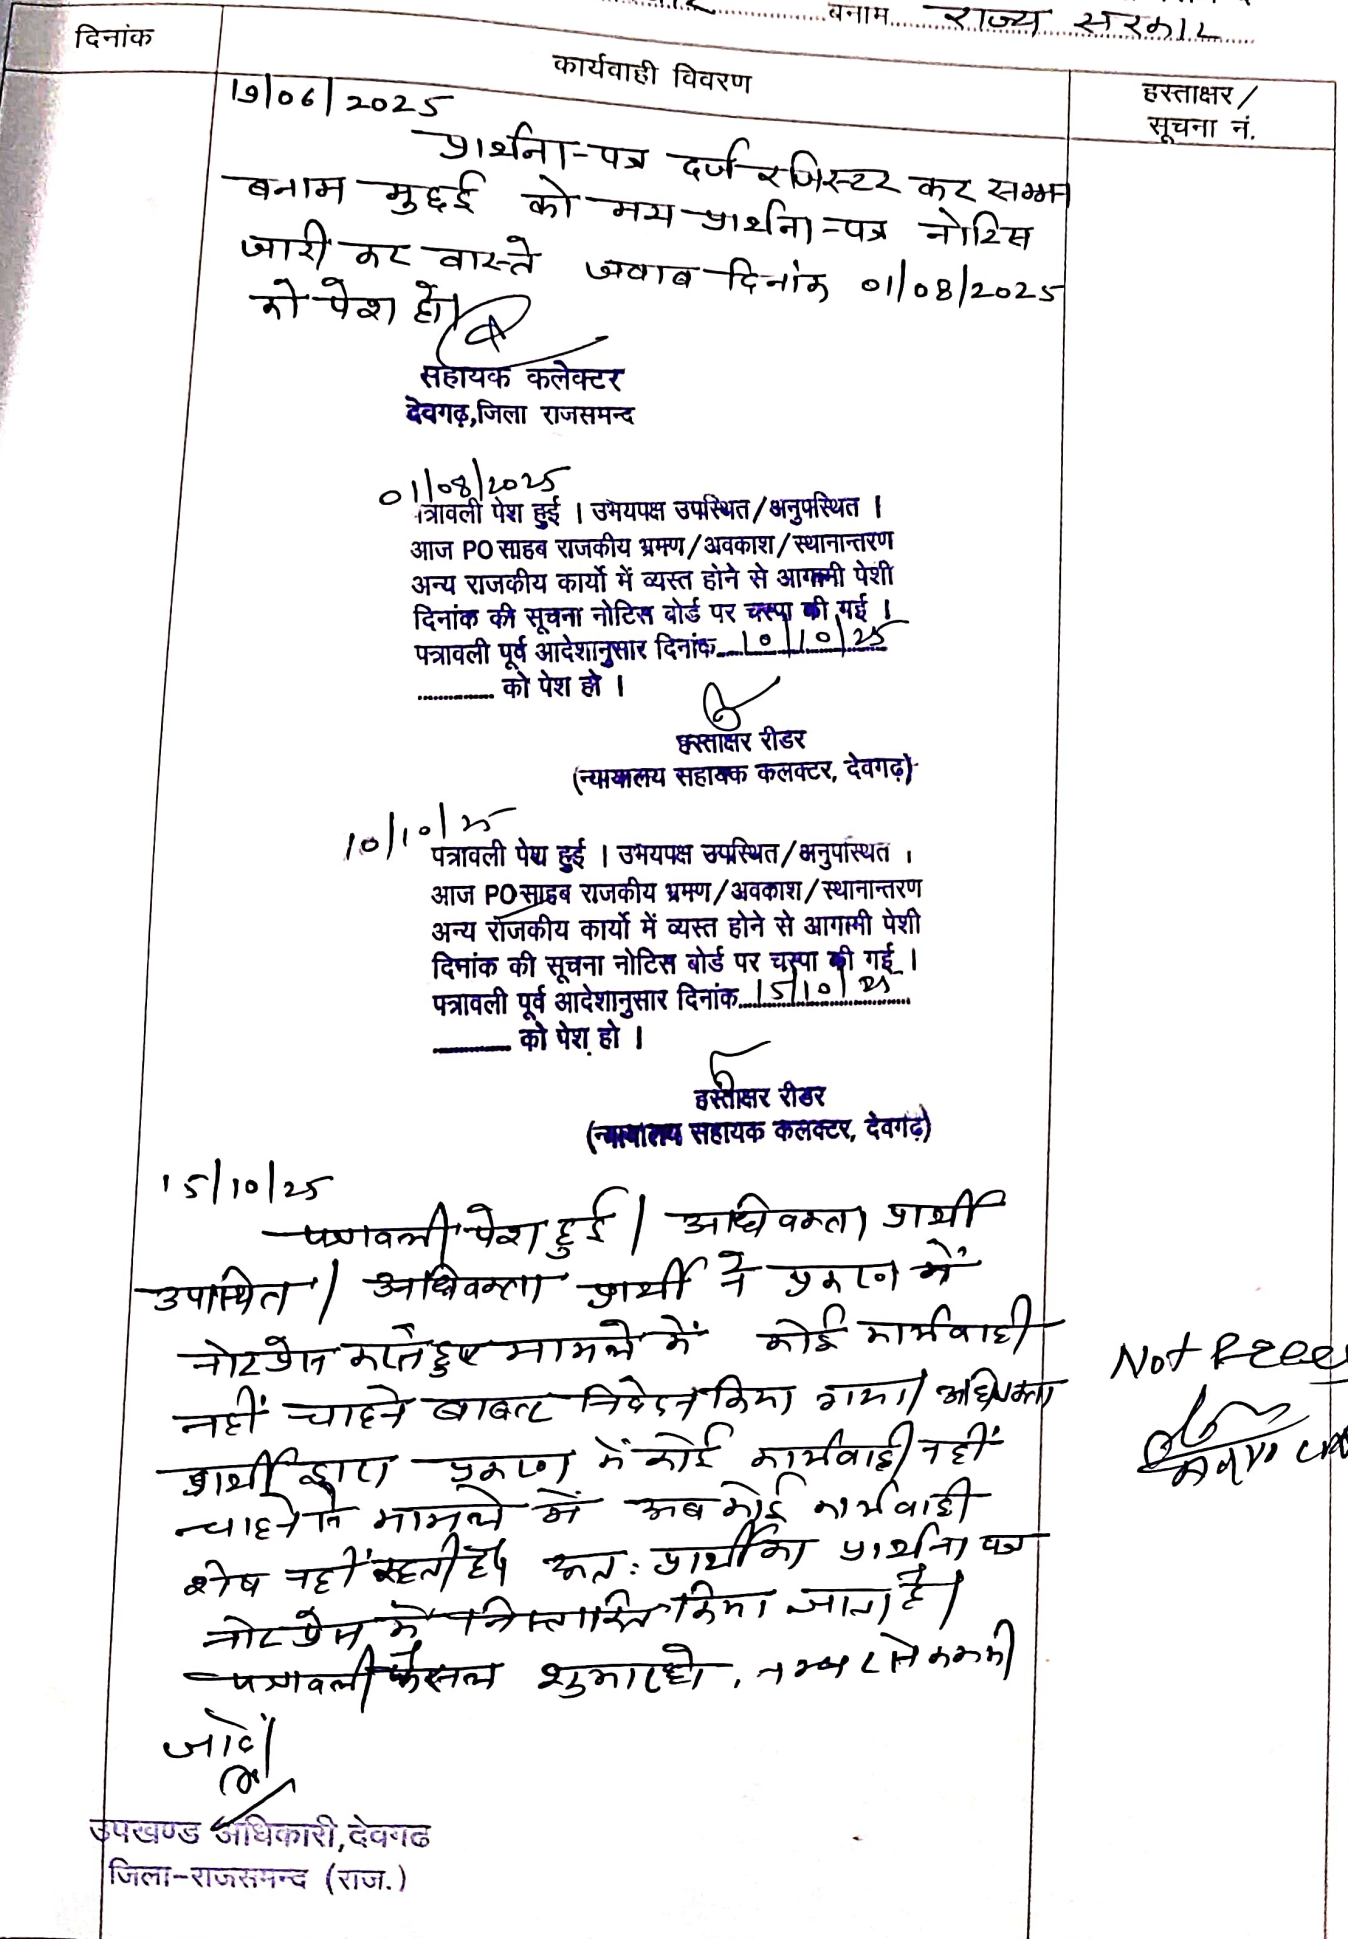 बनाम राज्य सरकार
दिनांक
कार्यवाही विवरण
हस्ताक्षर/
सूचना नं.
17/06/2025
प्रार्थना-पत्र दर्ज रजिस्टर कर सम्मन
बनाम मुद्दई को मय प्रार्थना-पत्र नोटिस
जारी कर वास्ते जवाब दिनांक 01/08/2025
को पेश हो।
सहायक कलेक्टर
देवगढ़,जिला राजसमन्द
01/08/2025
पत्रावली पेश हुई । उभयपक्ष उपस्थित/अनुपस्थित ।
आज PO साहब राजकीय भ्रमण/अवकाश/स्थानान्तरण
अन्य राजकीय कार्यो में व्यस्त होने से आगामी पेशी
दिनांक की सूचना नोटिस बोर्ड पर चस्पा की गई ।
पत्रावली पूर्व आदेशानुसार दिनांक 10/10/25
को पेश हो ।
हस्ताक्षर रीडर
(न्यायालय सहायक कलक्टर, देवगढ़)
10/10/25
पत्रावली पेश हुई । उभयपक्ष उपस्थित/अनुपस्थित ।
आज PO साहब राजकीय भ्रमण/अवकाश/स्थानान्तरण
अन्य राजकीय कार्यो में व्यस्त होने से आगामी पेशी
दिनांक की सूचना नोटिस बोर्ड पर चस्पा की गई ।
पत्रावली पूर्व आदेशानुसार दिनांक 15/10/25
को पेश हो ।
हस्ताक्षर रीडर
(न्यायालय सहायक कलक्टर, देवगढ़)
15/10/25
पत्रावली पेश हुई। अधिवक्ता प्रार्थी
उपस्थित। अधिवक्ता प्रार्थी ने प्रकरण में
नोटप्रेस करते हुए मामले में कोई कार्यवाही
नहीं चाहने बाबत निवेदन किया गया। अधिवक्ता
प्रार्थी द्वारा प्रकरण में कोई कार्यवाही नहीं
चाहने से मामले में अब कोई कार्यवाही
शेष नहीं रहती है। अतः प्रार्थी का प्रार्थना पत्र
नोटप्रेस में निस्तारित किया जाता है।
पत्रावली फैसल शुमार हो, नम्बर से कम की
जावें।
Not
उपखण्ड अधिकारी,देवगढ
जिला-राजसमन्द (राज.)